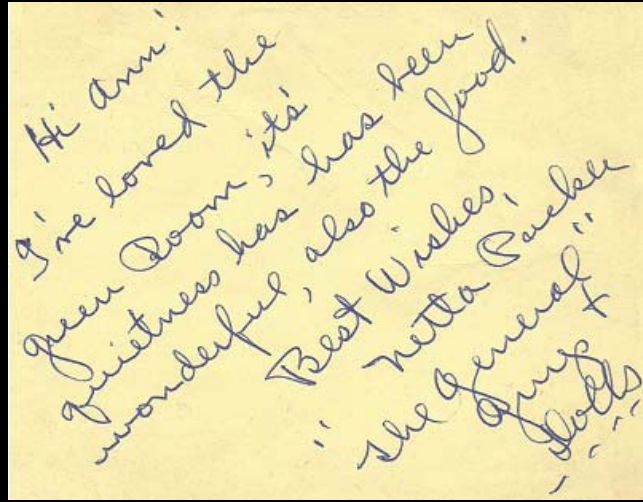 Hi Ann!
I've loved the
green Room, it's
quietness has has been
wonderful, also the food.
Best Wishes,
Netta Packer
"The General"
Guys +
Dolls